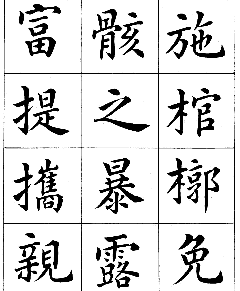 施棺槨免
骸之暴露
富提攜親